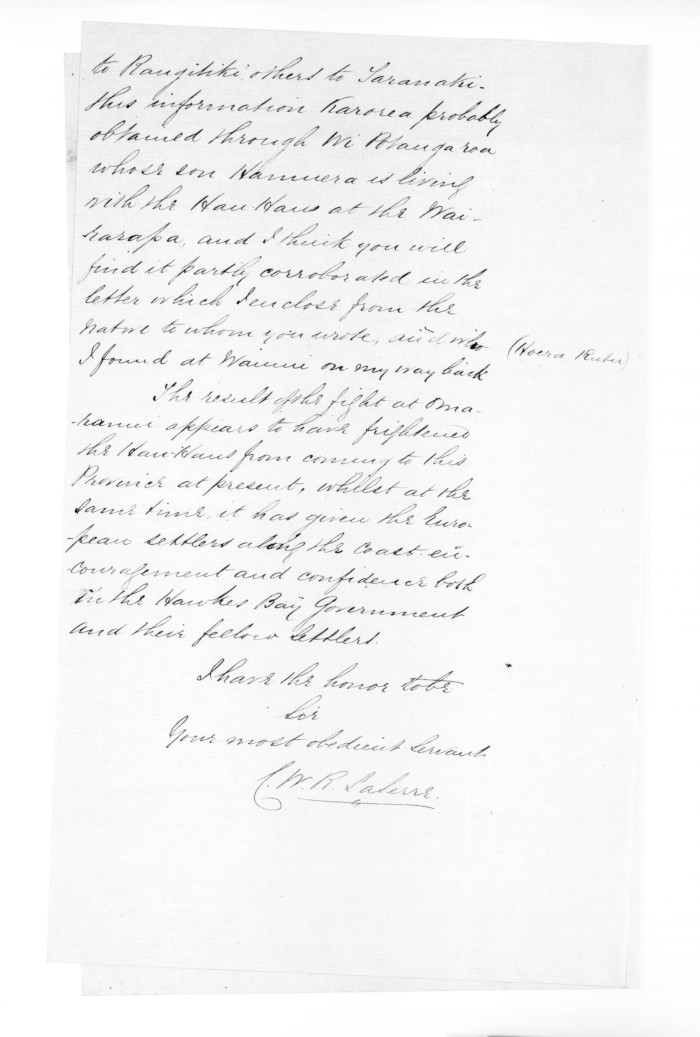 to Rangitiki, others to Taranaki -
this information Karorea probably
obtained through Wi Potangaroa
whose son Hamuera is living
with the Hau Haus at the Wai-
rarapa, and I think you will
find it partly corroborated in the
letter which I enclose from the
native to whom you wrote, and who
(Hoera Rutu)
I found at Wainui on my way back
The result of the fight at Oma-
-ranui appears to have frightened
the Hau-Haus from coming to this
Province at present, whilst at the
same time, it has given the Euro-
-pean settlers along the coast en-
-couragement and confidence both
in the Hawkes Bay Government
and their fellow settlers.
I have the honor to be
Sir
Your most obedient Servant
C. W. R. LaSerre.